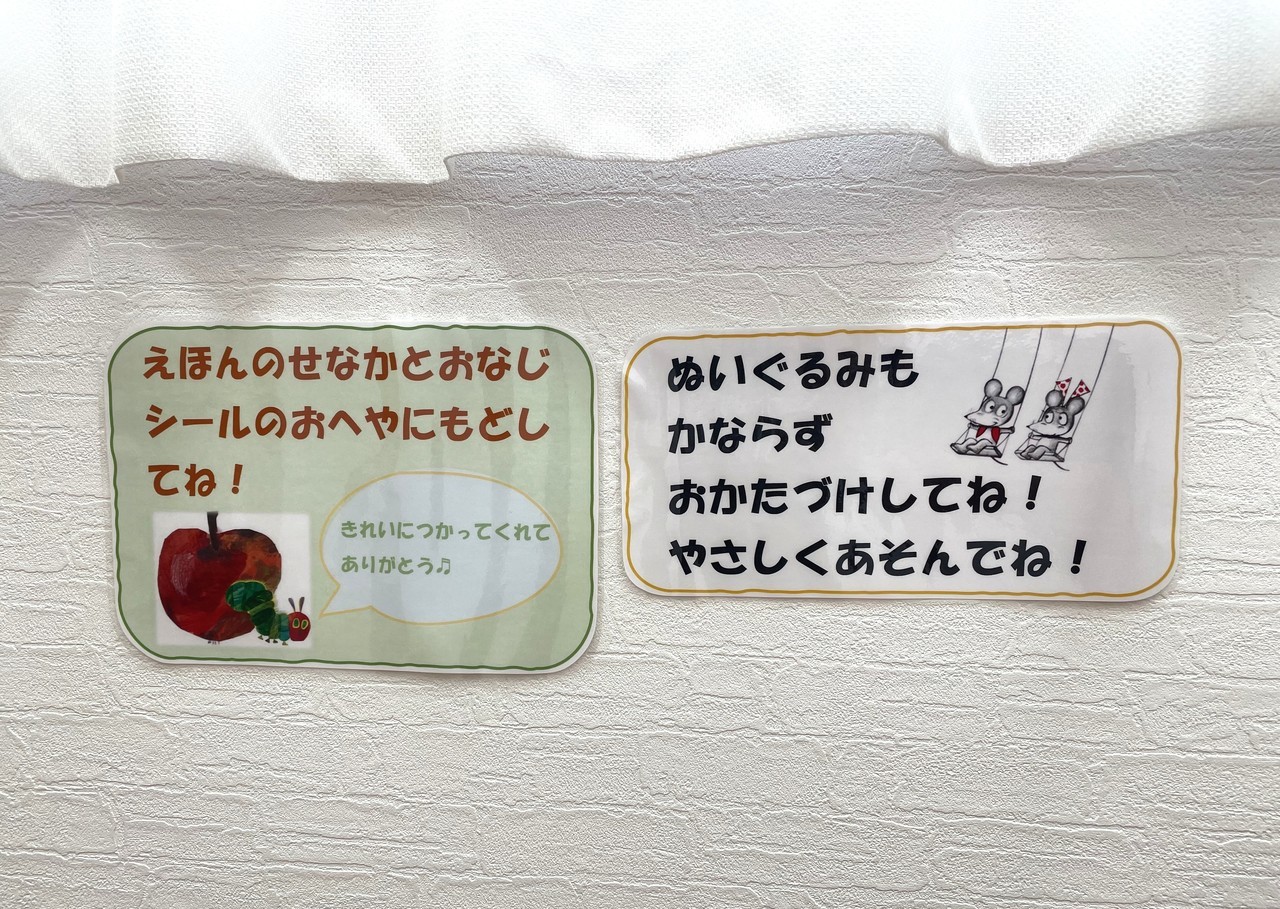 えほんのせなかとおなじ
シールのおへやにもどし
てね！
きれいにつかってくれて
ありがとう♫
ぬいぐるみも
かならず
おかたづけしてね！
やさしくあそんでね！